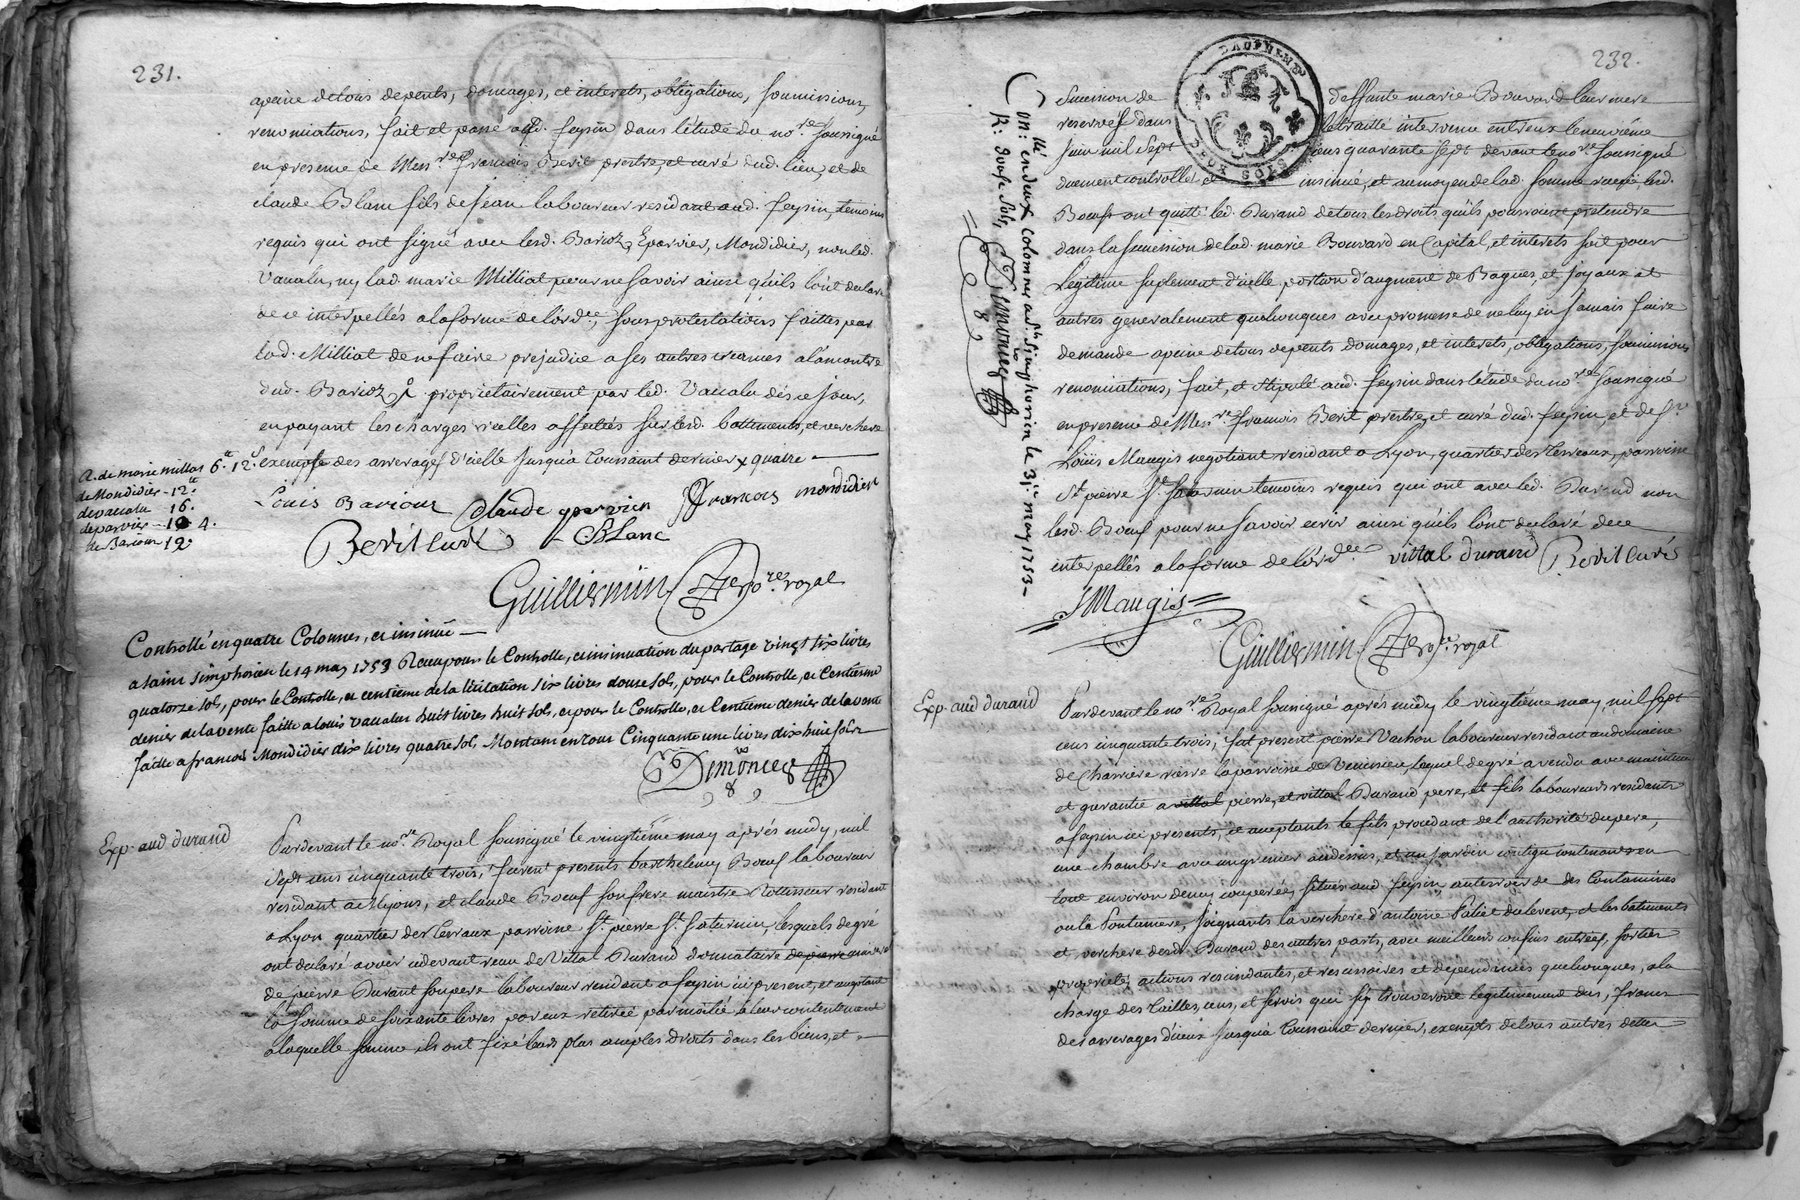 231.
apeine detous depents, domages, et interets, obligations, soumissions,
renontiations, fait et passé aud. feysin dans l'étude du no.re soussigné
en presense de Mess.re françois Beril prestre, et curé dud. lieu, et de
claude Blanc fils de Jean laboureur residant aud. feysin temoins
requis qui ont signé avec lesd. Barioz, Eparvier, Mondidier, non led.
Vaualu, ny lad. marie Milliat pour ne savoir ainsi qu'ils l'ont declaré
de ce interpellés alaforme de l'ord.ce, sous protestations faittes par
lad. Milliat de ne faire prejudice a ses autres creances alancontre
dud. Barioz, & proprietairement par led. Vaualu dés ce jour,
en payant les charges réelles affectées sur lesd. battiments, et verchere
exempts des arrerages d'icelle jusqu'a toussaint dernier x quatre
R. de marie millat 6.# 12.s
de Mondidier - 12.#
de vaualu 16.
deparvier - 10 4.
de Bariou 12.
Louis Bariour Claude eparvier françois mondidier
Beril curé Blanc
Guilliermin no.re royal
Controllé en quatre Colonnes, et insinué
a saint simphorien le 14 may 1753 Recu pour le Controlle, et insinuation du partage vingt six livres
quatorze sols, pour le Controlle, et centieme de la licitation six livres douse sols, pour le Controlle, et Centieme
denier de la vente faitte a louis vaualu huit livres huit sols, et pour le Controlle, et Centieme denier de la vente
faitte a francois Mondidier dix livres quatre sols, Montant en tout Cinquante une livres dix huit sols
Dimonceg
Exp. aud durand
Pardevant le no.re Royal soussigné le vingtiême may aprés midy, mil
sept cens cinquante trois, furent presents barthelemy Boeuf laboureur
residant a Mions, et claude Boeuf son frere maitre residant
a Lyon quartier des terraux parroisse S.t pierre S.t Saturnin, lesquels degré
ont declaré avoir cydevant receu de Vittal Durand donnataire de pierre
de pierre Durant son pere laboureur residant a feysin ici present, et aceptant
la somme de soixante livres par eux retirée par moitié a leur contentement
a laquelle somme ils ont fixé leurs plus amples droits dans les biens, et
232.
DAUPHINÉ
DEUX SOLS
Con.llé en deux colonnes a S.t Simphorien le 31.e may 1753
R: douse sols, Dimonceg
sucession de deffunte marie Bouvard leur mere
reservés dans le traitté intervenu entr'eux le neuvième
Juin mil sept cens quarante sept devant le no.re soussigné
duement controllé et insinué, et au moyen de lad. somme receue lesd.
Boeuf ont quitté led. Durand de tous les droits qu'ils pourroient pretendre
dans la sucession de lad. marie Bouvard en capital, et interets soit pour
Légitime suplement d'icelle portion d'augment de Bagues, et joyaux et
autres generalement quelconques avec promesse de ne luy en jamais faire
demande apeine de tous depents domages, et interets, obligations, soumissions
renontiations, fait, et stipulé aud. feysin dans l'etude du no.re soussigné
en presense de Mess.re francois Beril prestre, et curé dud. feysin, et de S.r
Loüis Maugis negotiant residant a Lyon, quartier des terreaux, parroisse
S.t pierre S.t Saturnin temoins requis qui ont avec led. Durand non
lesd. Boeuf pour ne savoir ecrir ainsi qu'ils l'ont declaré de ce
interpellés alaforme de l'ord.ce vittal durand Beril curé
Maugis
Guilliermin no.re royal
Exp. aud durand
Pardevant le no.re Royal soussigné aprés midy le vingtiême may, mil sept
cens cinquante trois, fut present pierre Vachon laboureur residant audomaine
de Charriere vieille la parroisse de Venissieu, lequel degré a vendu avec maintenue
et garantie a vittal pierre, et vittal Durand pere, et fils laboureurs residants
a feysin ici presents, et aceptants le fils procedant de l'authorité du pere,
une chambre avec un grenier au dessus, et un jardin contigu contenants en
tout environ demy couperée, situés aud feysin au terroir de des Contamines
ou la Fontaniere, joignants la verchere d'antoine du levent, et les batiments
et verchere desd. Durand des autres parts, avec meilleurs confins entrées, sorties
proprietés actions rescindantes, et rescisoires et dependances quelconques, ala
charge des tailles, cens, et servis qui s'y trouveront legitimement dus, francs
des arrerages d'iceux jusqu'a toussaint dernier, exempts de tous autres dettes